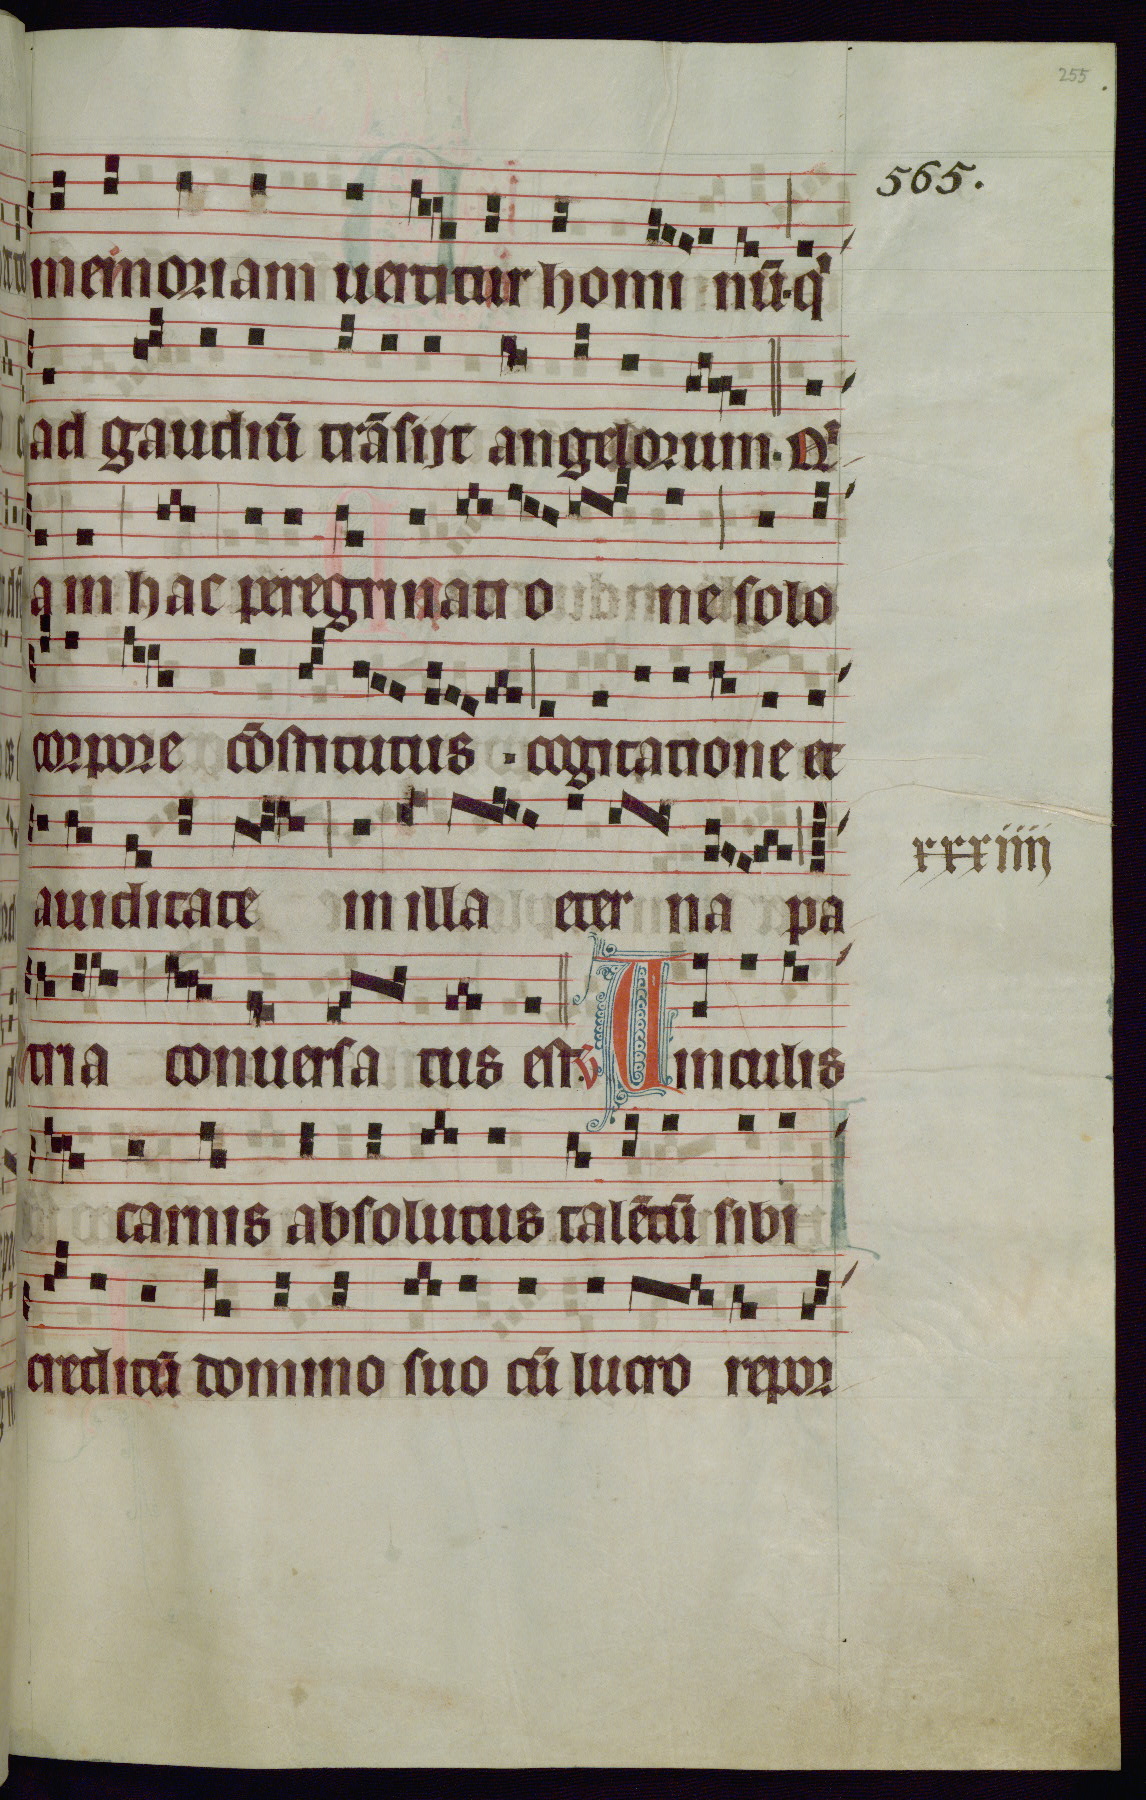 255
565.
memoriam uertitur homi nū·q̇
ad gaudiū trāsijt angelorum· Q
a in hac peregrinati o ne solo
corpore cōstitutus · cogitatione et
auiditate in illa eter na pa
xxxiiij
tria conuersa tus est. v Vinculis
carnis absolutus talētū sibi
creditū domino suo cū lucro repor